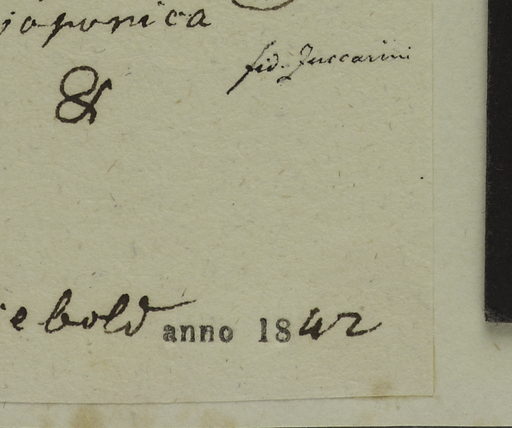 japonica
fid. Zuccarini
&
ebold anno 1842